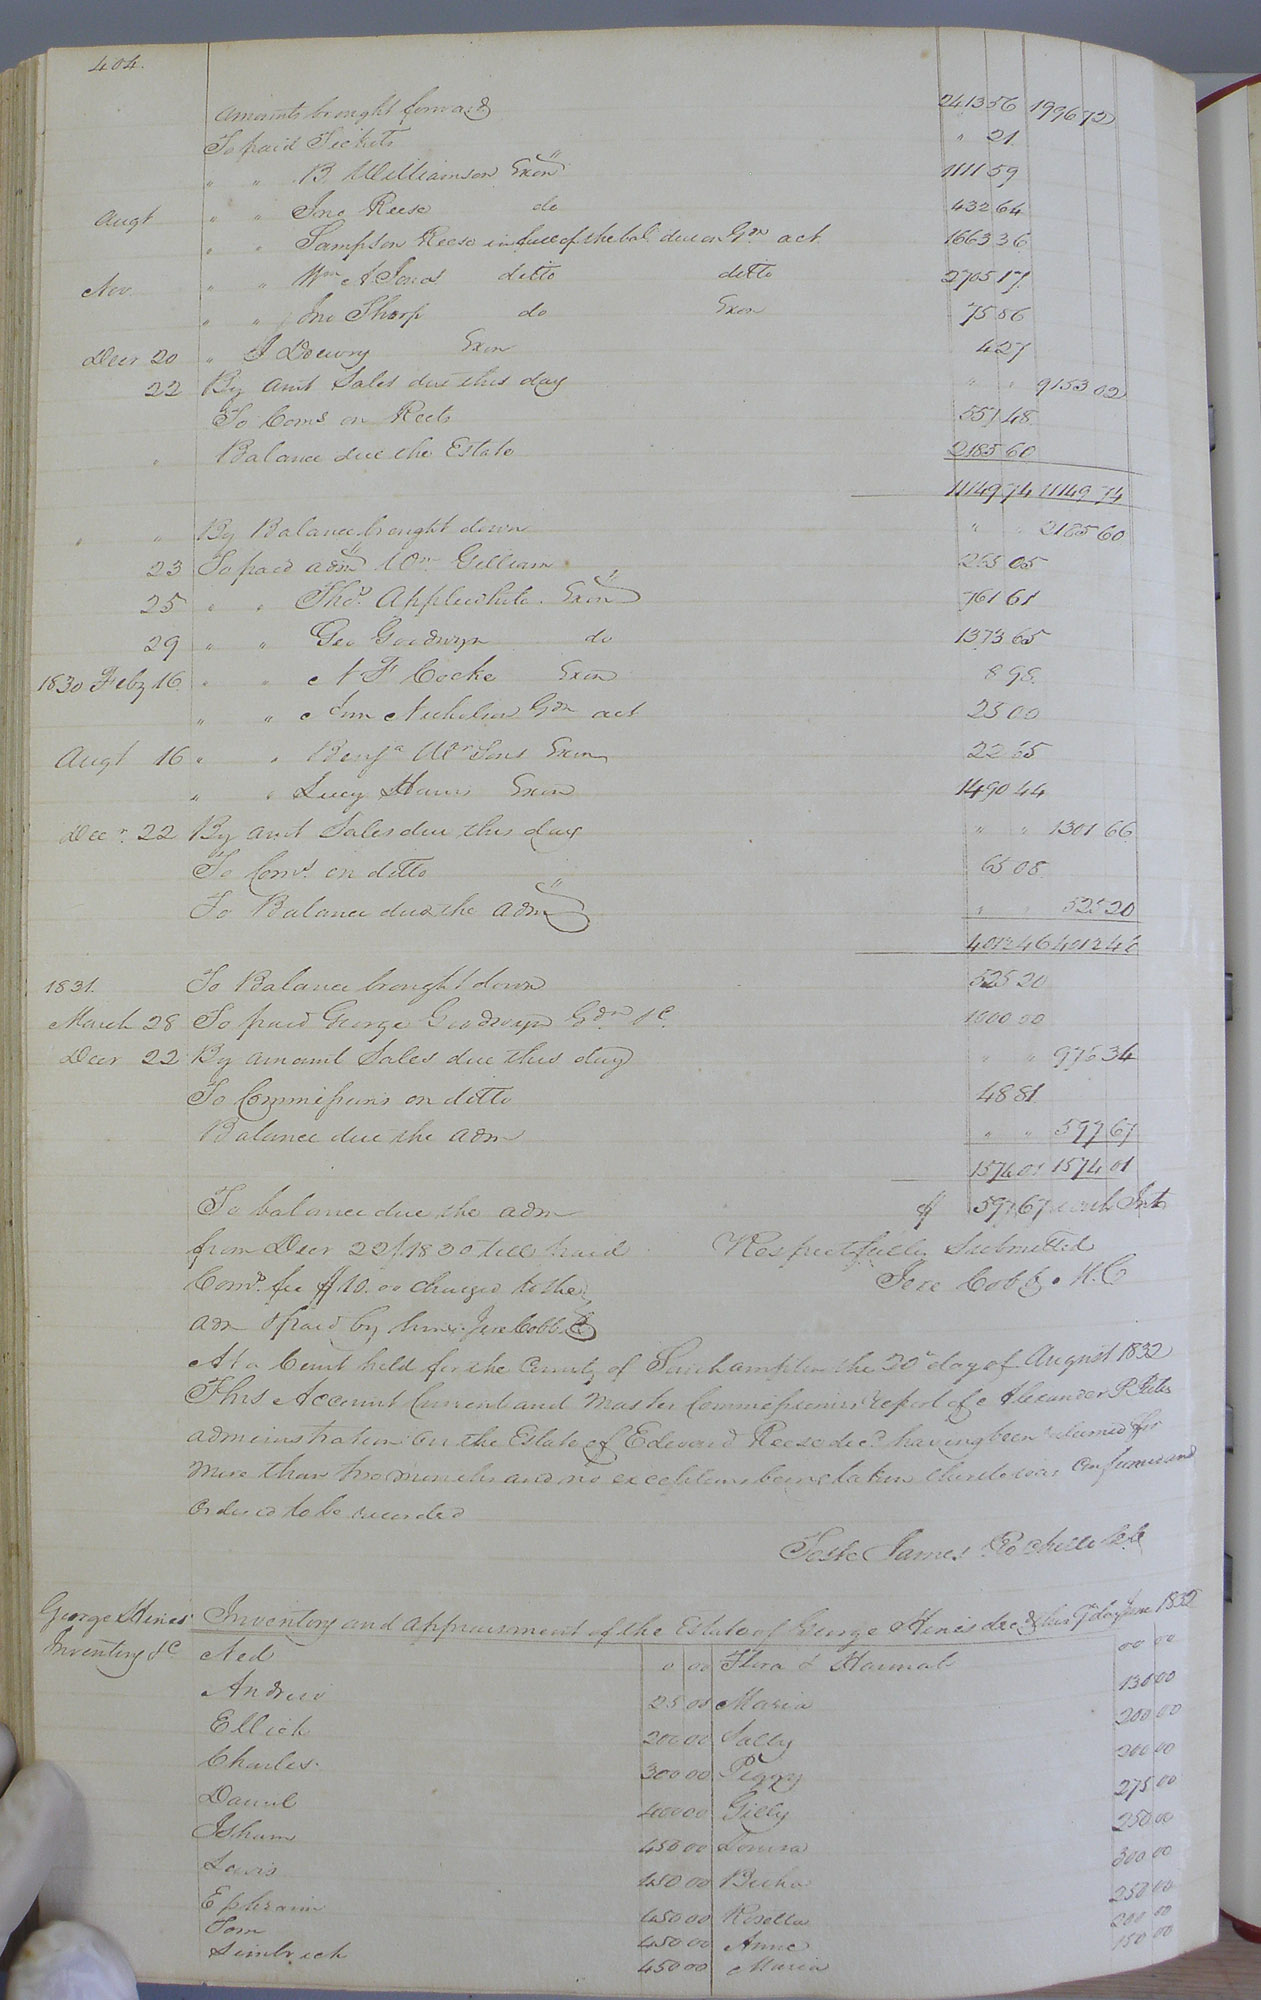 404.
Amounts brought forward 2413 56 1996 72
To paid Tickets " 21
" " B Williamson Exon 1111 59
Augt " " Jno Reese do 432 64
" " Sampson Reese in full of the bal. due on Gdn act 1663 36
Nov. " " Wm A Jones ditto ditto 2705 17
" " Jno Sharp do Exon 75 86
Decr 20 " J Drewry Exon 4 27
22 By amt Sales due this day " " 9153 02
To Coms on Rects 557 48
" Balance due the Estate 2185 60
11149 74 11149 74
" " By Balance brought down " " 2185 60
23 To paid adm Wm Gilliam 265 05
25 " " Thos. Applewhite Exon 761 61
29 " " Geo Goodwyn do 1373 65
1830 Feby 16 " " N F Cocke Exon 8 98
" " Ann Nicholson Gdn act 25 00
Augt 16 " " Benja Wm Sons Exon 22 65
" " Lucy Harris Exon 1490 44
Decr. 22 By amt Sales due this day " " 1301 66
To Coms. on ditto 65 08
To Balance due the adm " " 525 20
4012 46 4012 46
1831. To Balance brought down 525 20
March 28 To paid George Goodwyn Gdn &c. 1000 00
Decr 22 By amount Sales due this day " " 976 34
To Commissions on ditto 48 81
Balance due the adm " " 597 67
1574 01 1574 01
To balance due the adm $ 597 67 with Int
from Decr 22d 1830 till paid Respectfully Submitted
Comr. fee $10.00 charged to the Jere Cobb. M.C
adm & paid by him. Jere Cobb
At a Court held for the County of Southampton the 20th day of August 1832
This Account Current and Master Commissioners report of Alexander P. Peete
administration on the Estate of Edward Reese decd. having been returned for
more than two months and no exceptions being taken thereto was confirmed and
ordered to be recorded
Teste James Rochelle C.C.
George Hines Inventory and appraisment of the Estate of George Hines decd. this 9 day June 1832
Inventory &c Ned 0 00 Flora & Hannah 00 00
Andrew 25 00 Maria 130 00
Ellick 200 00 Sally 200 00
Charles. 300 00 Peggy 300 00
Daniel 400 00 Gilly 275 00
Isham 450 00 Louisa 250 00
Lewis 450 00 Becha 300 00
Ephraim 450 00 Rosella 250 00
Tom 450 00 Anne 200 00
Limbrick 450 00 Maria 150 00